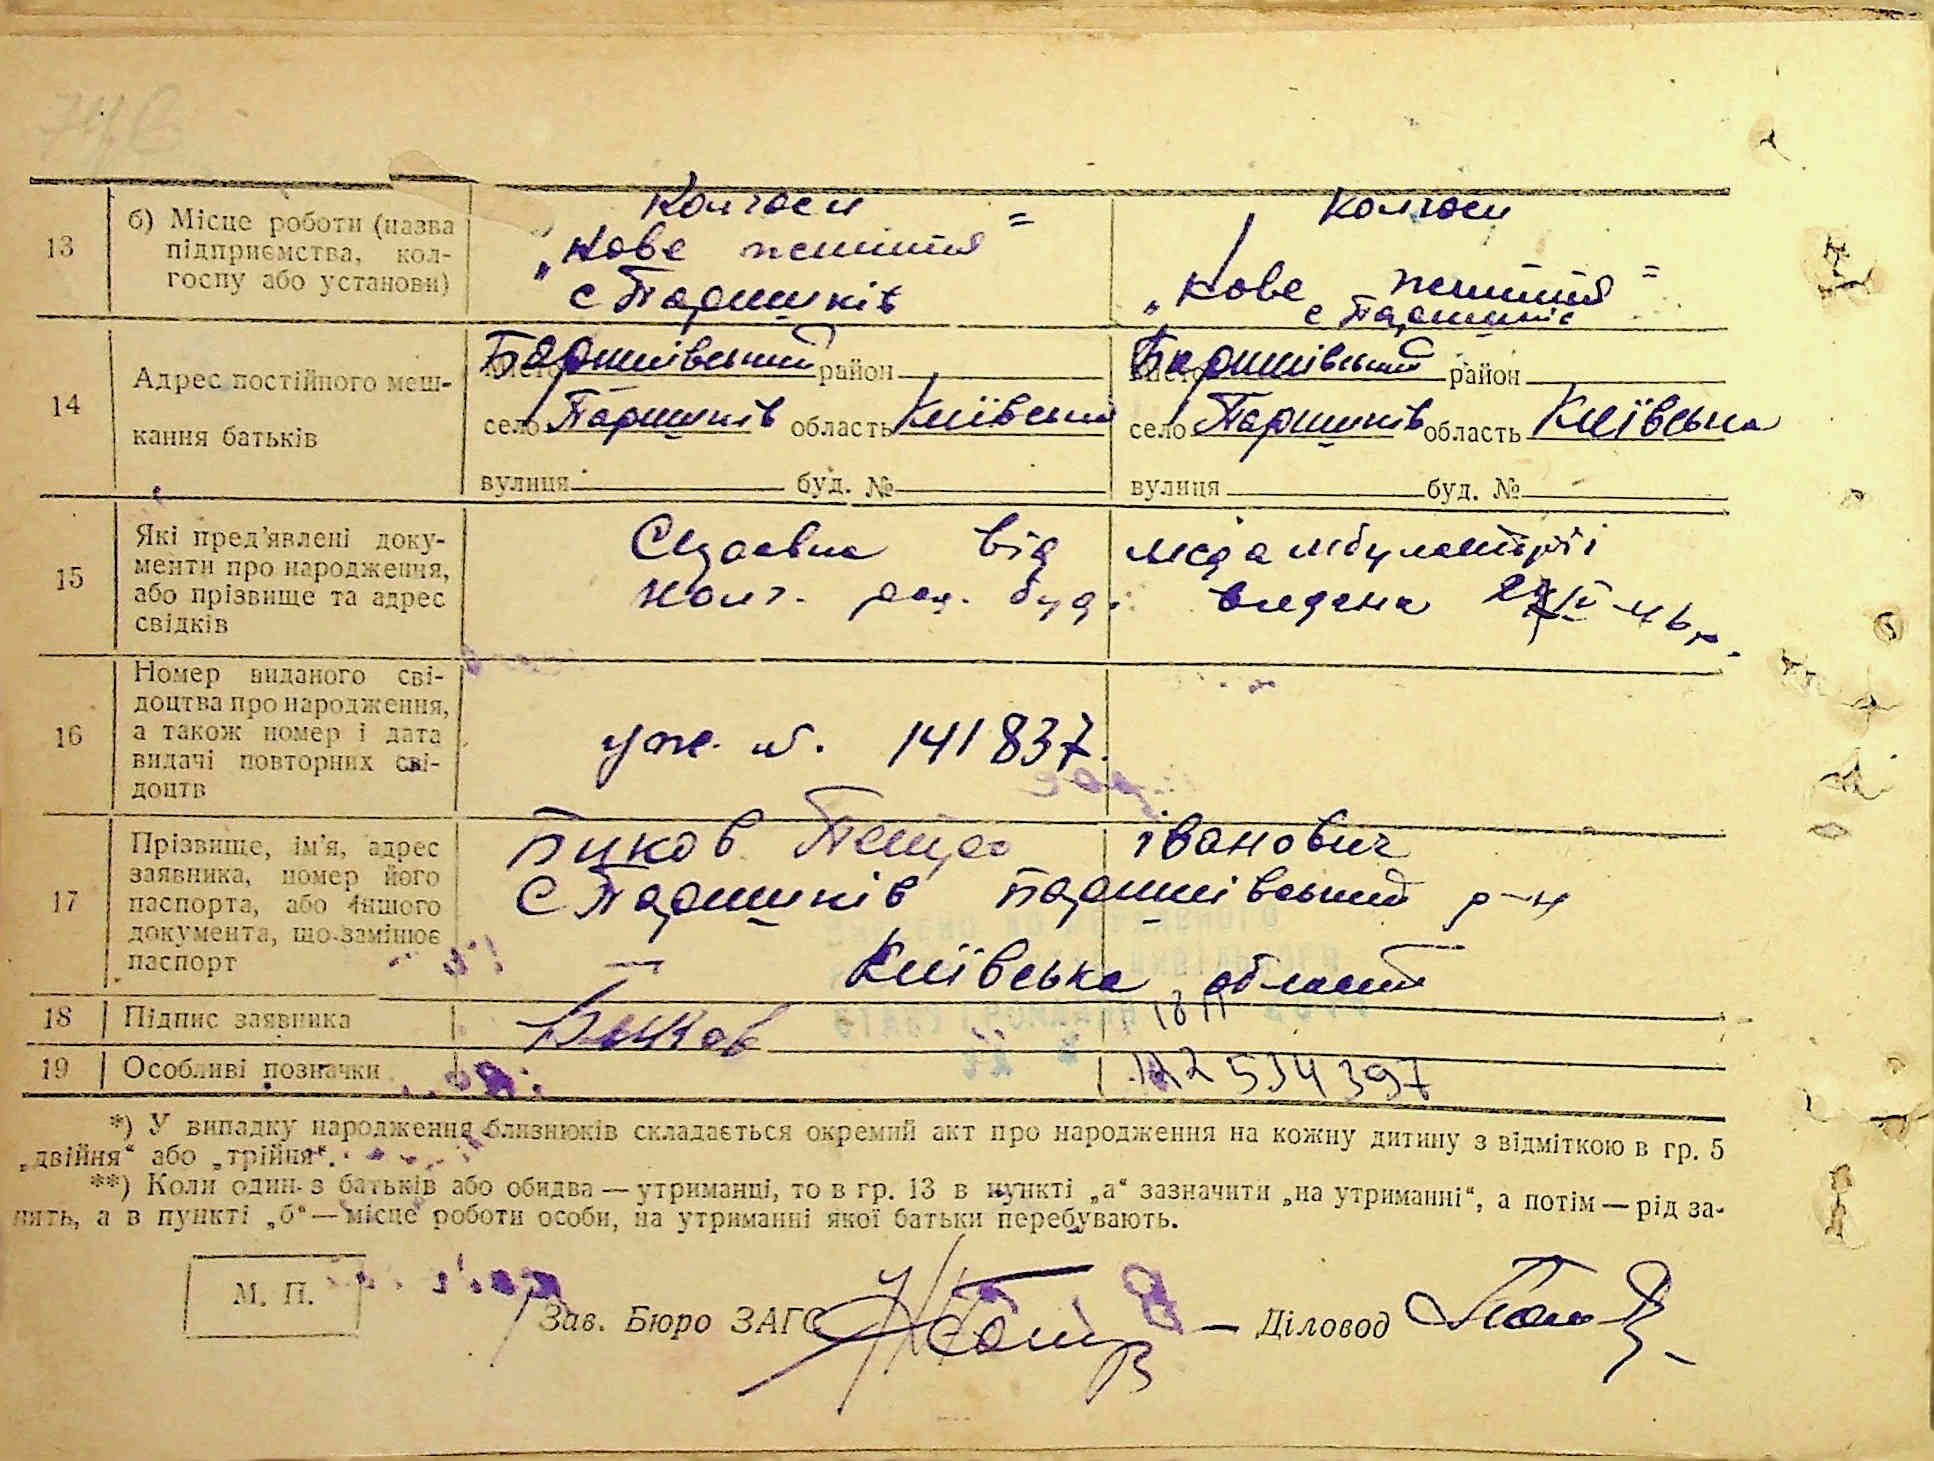 13
б) Місце роботи (назва
підприємства, кол-
госпу або установи)
Колгосп
„Нове життя"
с Паришків
Колгосп
„Нове життя"
с Паришків
14
Адрес постійного меш-
кання батьків
Баришівський район
село Паришків область Київська
вулиця буд. №
Баришівський район
село Паришків область Київська
вулиця буд. №
15
Які пред'явлені доку-
менти про народження,
або прізвище та адрес
свідків
від медамбулаторії
буд.
16
Номер виданого сві-
доцтва про народження,
а також номер і дата
видачі повторних сві-
доцтв
141837
17
Прізвище, ім'я, адрес
заявника, номер його
паспорта, або іншого
документа, що замінює
паспорт
Биков Петро Іванович
с Паришків Баришівський р-н
Київська область
18
Підпис заявника
Быков
19
Особливі позначки
534397
*) У випадку народження близнюків складається окремий акт про народження на кожну дитину з відміткою в гр. 5
„двійня" або „трійня".
**) Коли один з батьків або обидва — утриманці, то в гр. 13 в пункті „а" зазначити „на утриманні", а потім — рід за-
нять, а в пункті „б" — місце роботи особи, на утриманні якої батьки перебувають.
М. П.
Зав. Бюро ЗАГС
Діловод